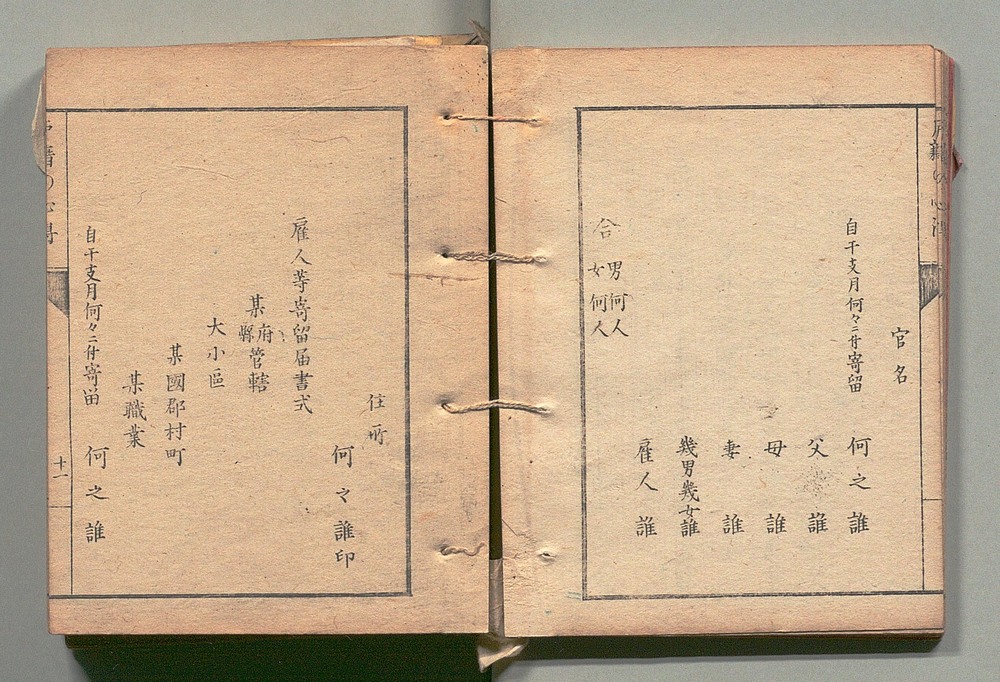 戸籍の心得
官名
自干支月何々ニ付寄留 何之誰
父 誰
母 誰
妻 誰
幾男幾女誰
雇人 誰
合 男何人
女何人
住所
何之誰印
雇人等寄留届書式
某府縣管轄
大小區
某國郡村町
某職業
自干支月何々ニ付寄留 何之誰
戸籍の心得 十一